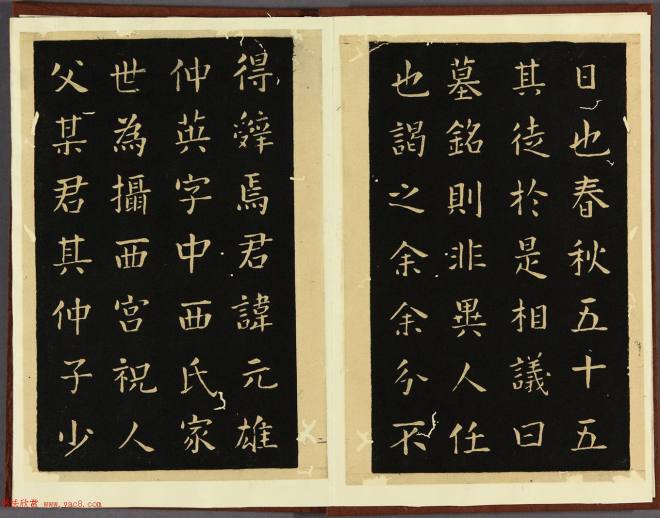 日也春秋五十五
其徒於是相議曰
墓銘則非異人任
也謁之余余分不
得辭焉君諱元雄
仲英字中西氏家
世為攝西宮祝人
父某君其仲子少
www.yac8.com